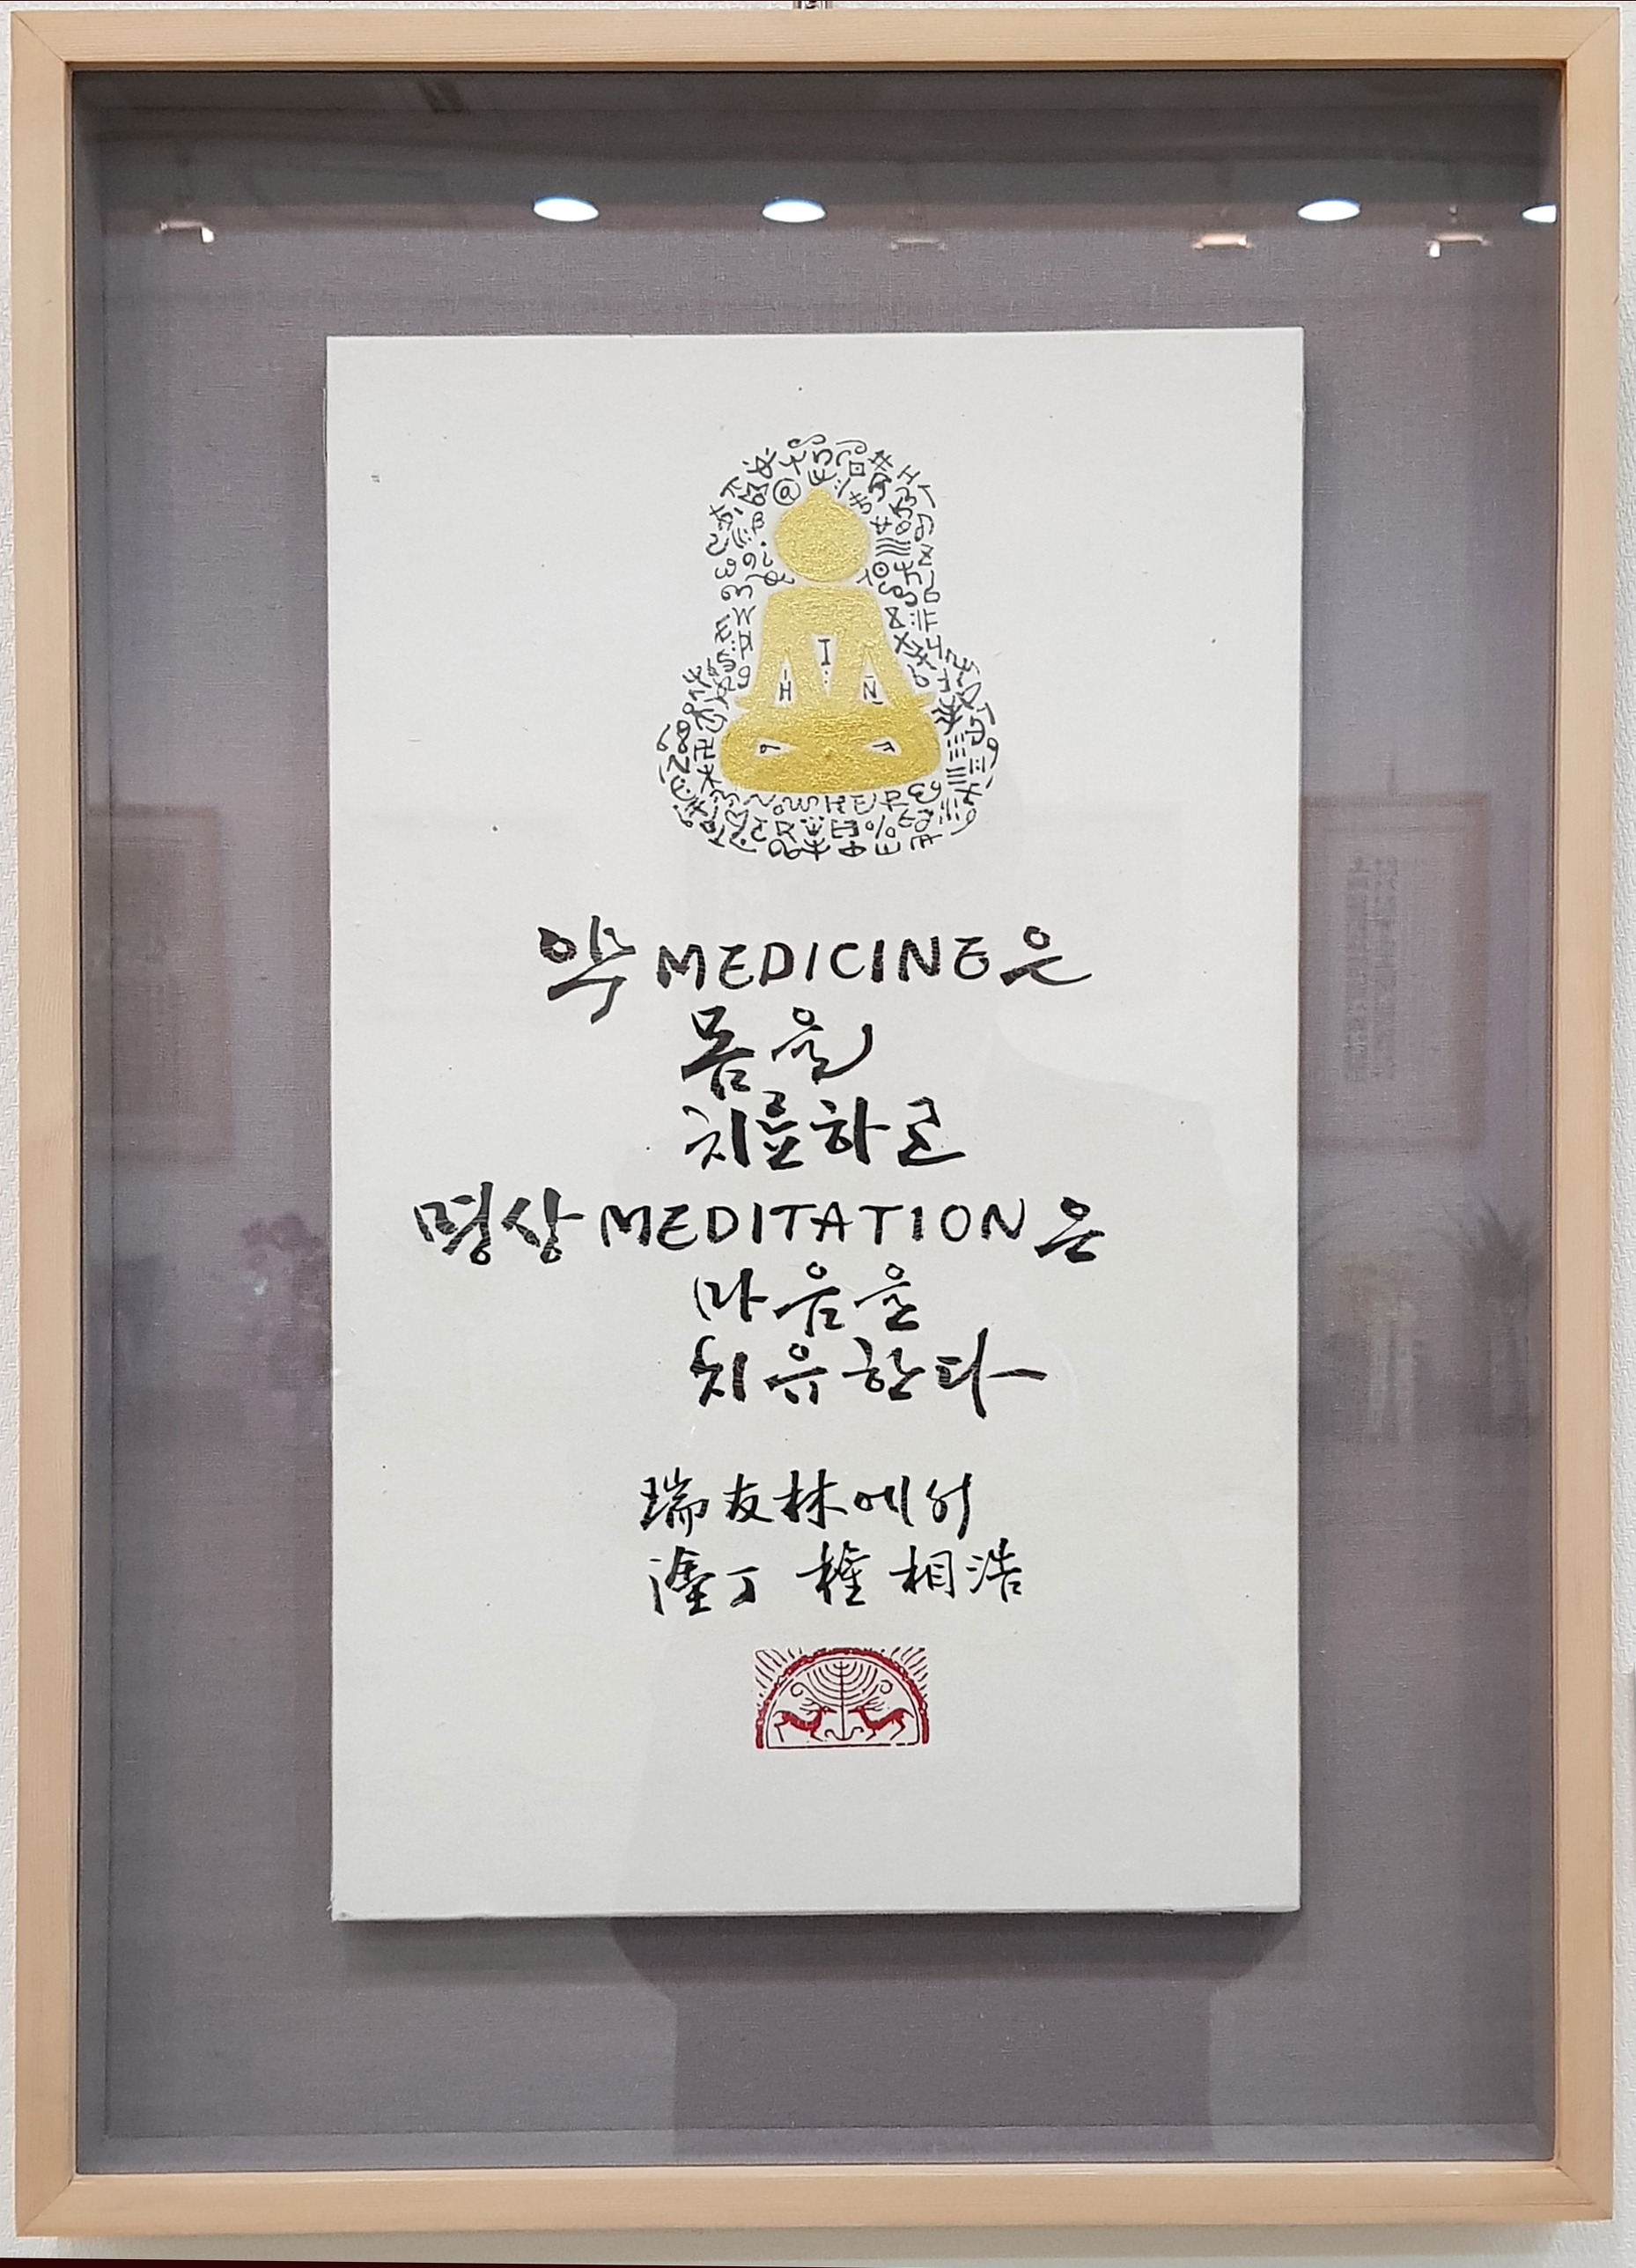 약 MEDICINE은
몸을
치료하고
명상 MEDITATION은
마음을
치유한다
瑞友林에서
塗丁 權相浩